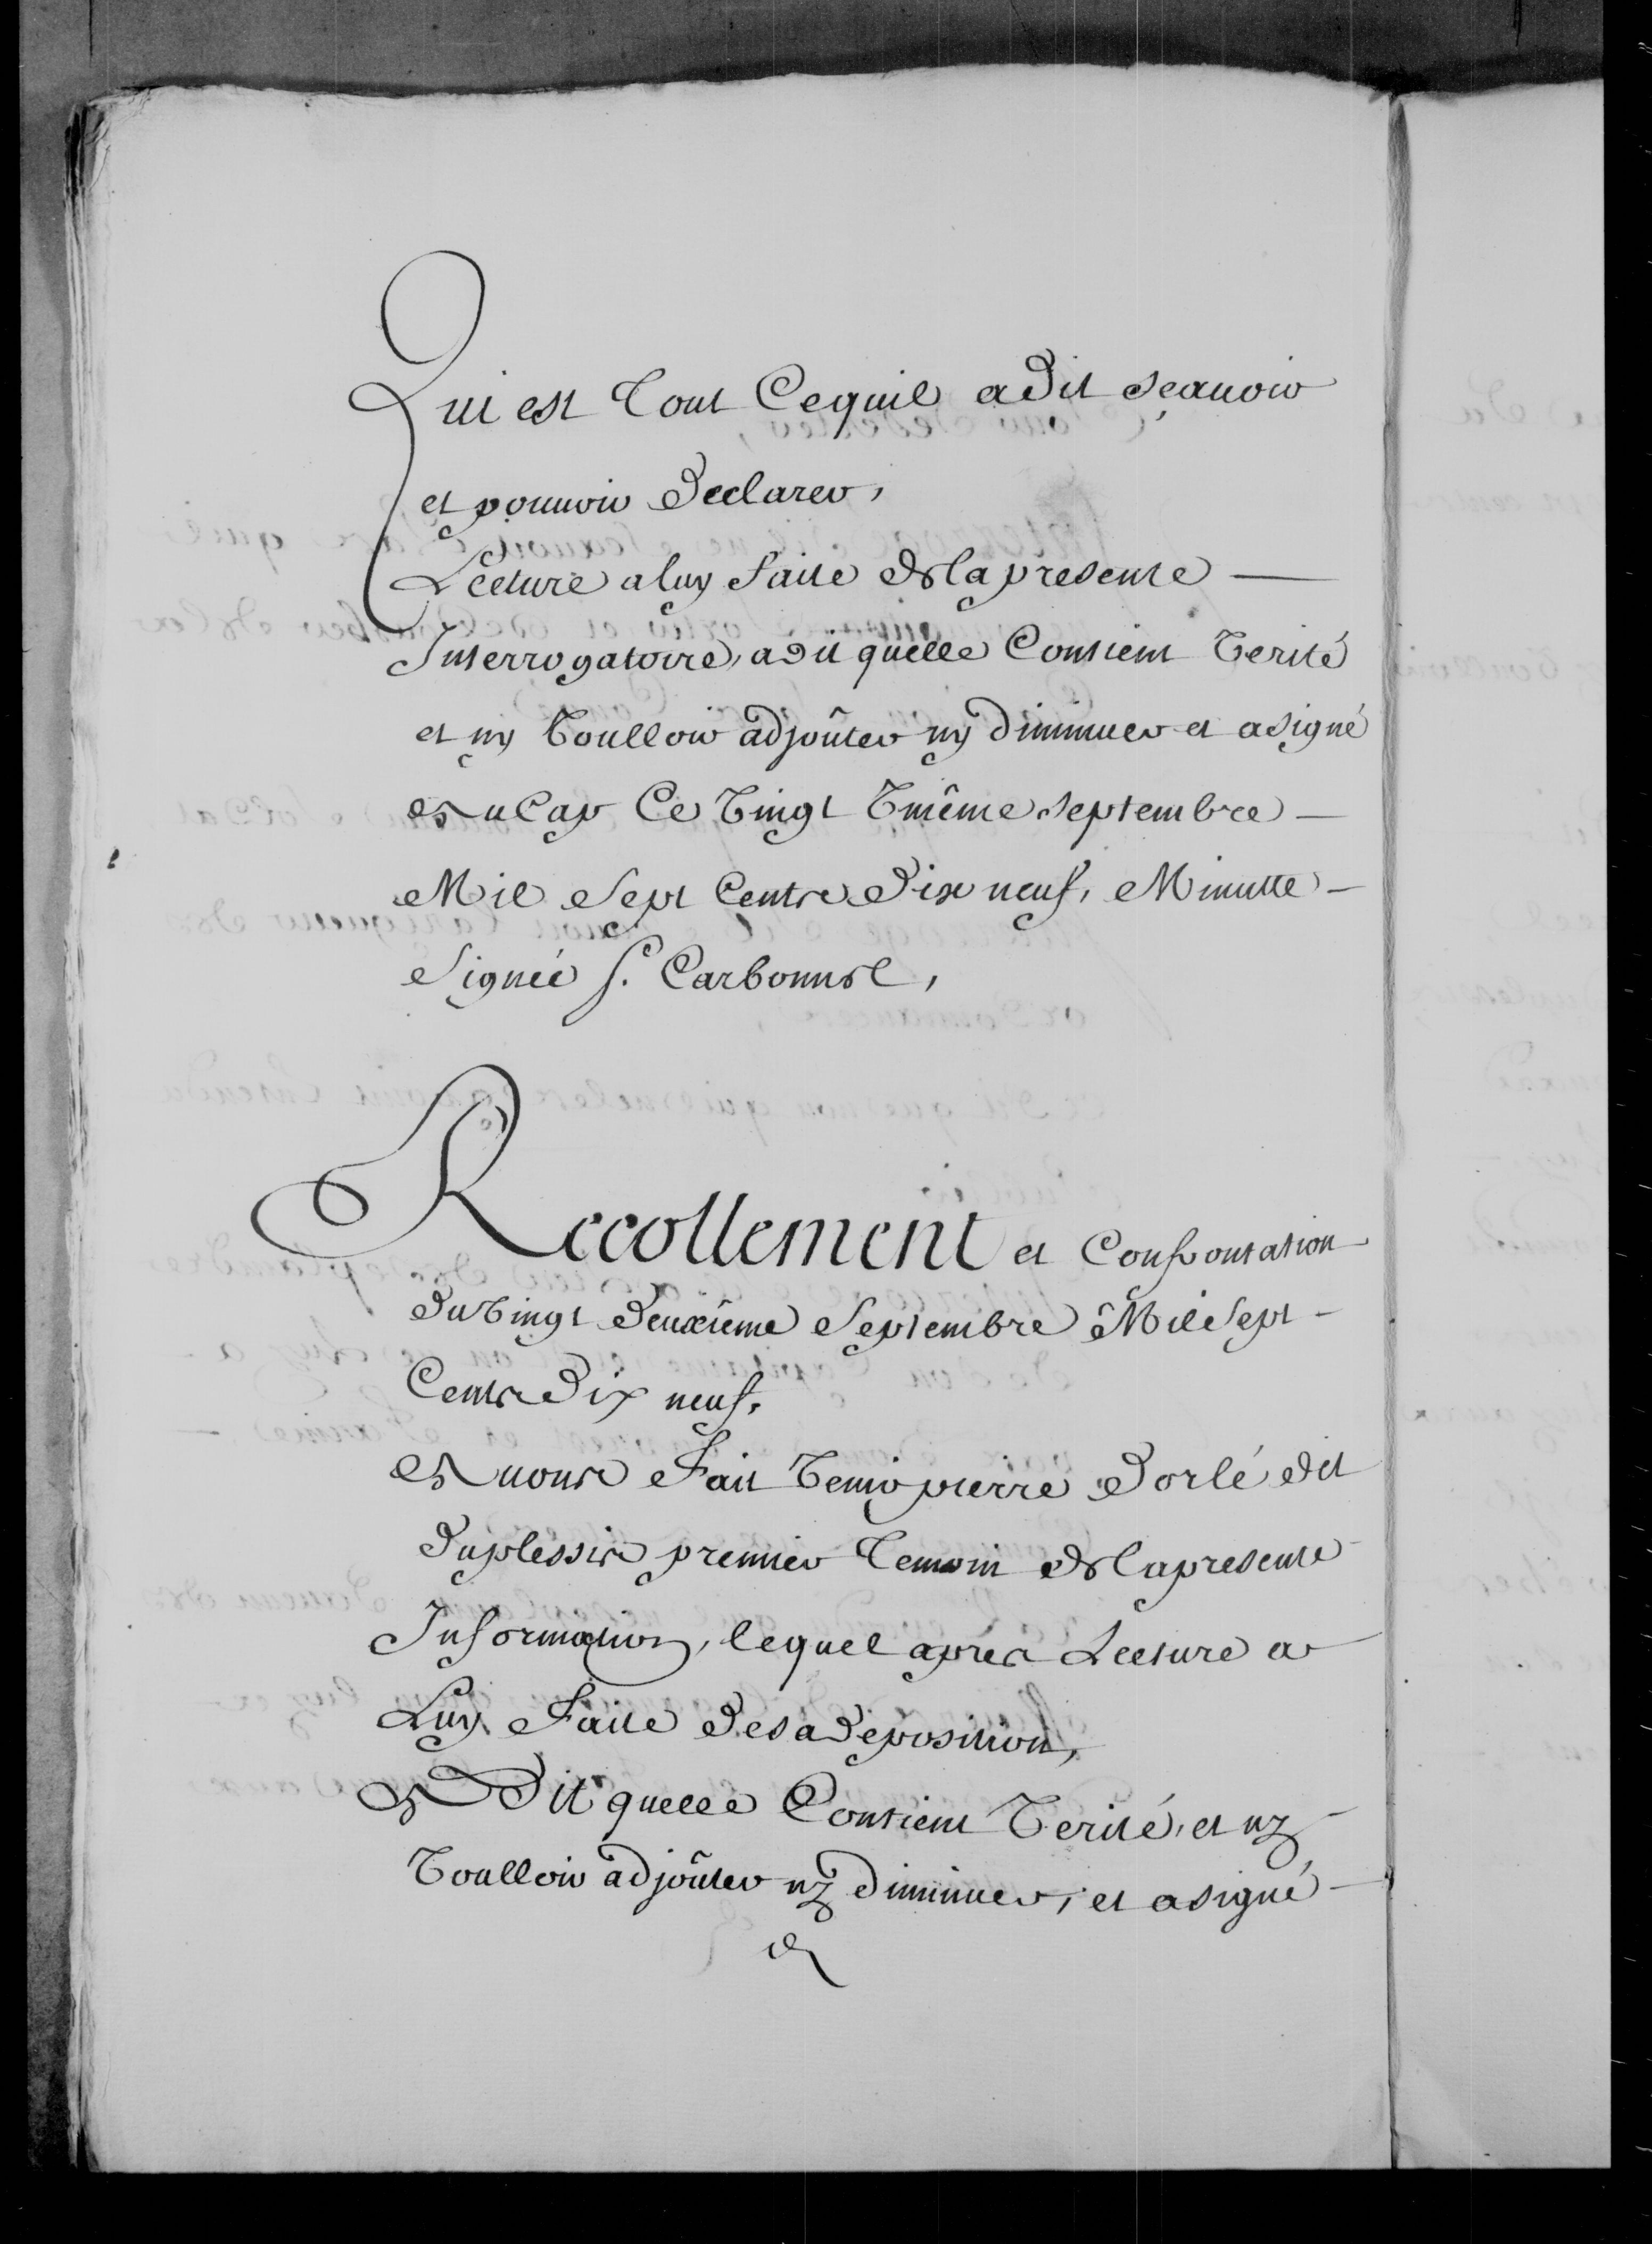 Qui est tout Cequil adit sçauoir
et pouuoir declarer,
Lecture aluy faite de la presente
Interrogatoire, adit quelle Contient Verité
et ny Voulloir adjoûter ny diminuer et asigné
au Cap Ce Vingt Vnième septembre
Mil Sept Cents Dix neuf, Minutte
Signée f. Carbonnel,
Recollement et Confrontation
du Vingt deuxième Septembre Mil Sept
Cents Dix neuf,
Auons Fait Venir pierre Dorlé dit
Duplessis premier temoin de lapresente
Information, lequel apres Lecture a
Luy Faite desa Deposition,
A Dit quelle Contient Verité, et ny
Voulloir adjoûter ny diminuer, et asigné